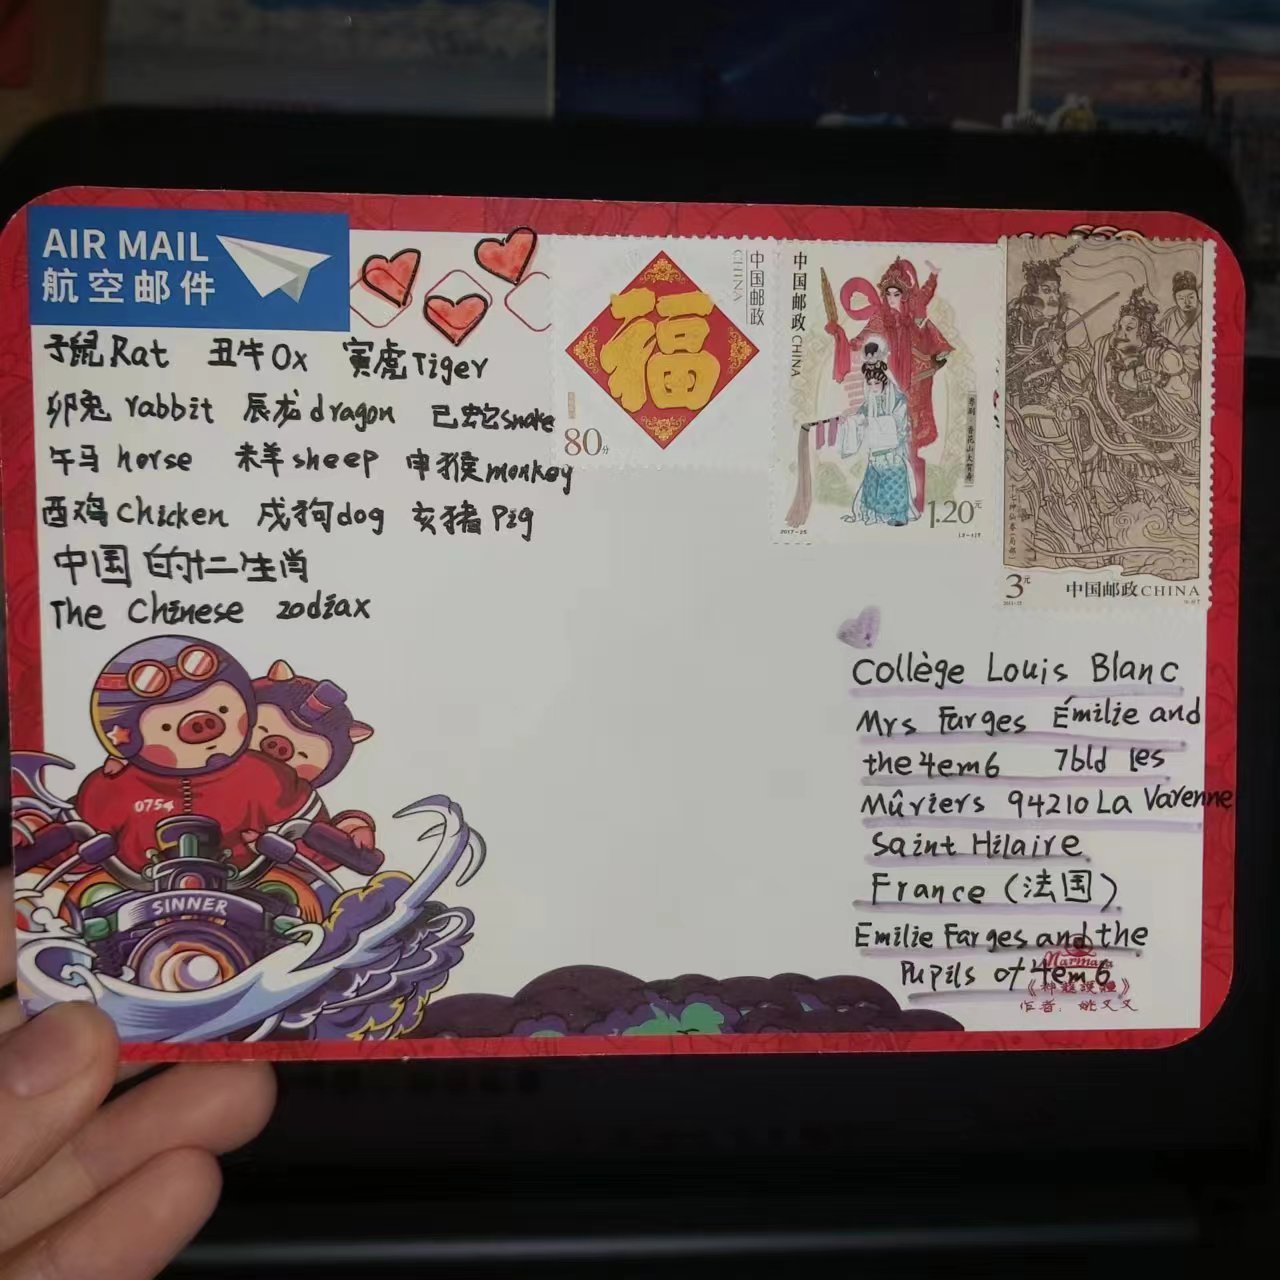 AIR MAIL
航空邮件
子鼠Rat 丑牛Ox 寅虎Tiger
卯兔rabbit 辰龙dragon 已蛇snake
午马horse 未羊sheep 申猴monkey
酉鸡Chicken 戌狗dog 亥猪Pig
中国的十二生肖
The Chinese zodiax
福
中国邮政
CHINA
80分
中国邮政CHINA
粤剧 香花山大贺寿
2017-25
1.20元
3元
中国邮政CHINA
Collège Louis Blanc
Mrs Farges Émilie and
the 4em6 7bld les
Mûriers 94210 La Varenne
Saint Hilaire
France (法国)
Emilie Farges and the
Pupils of 4em6
作者：姚又又
0754
SINNER